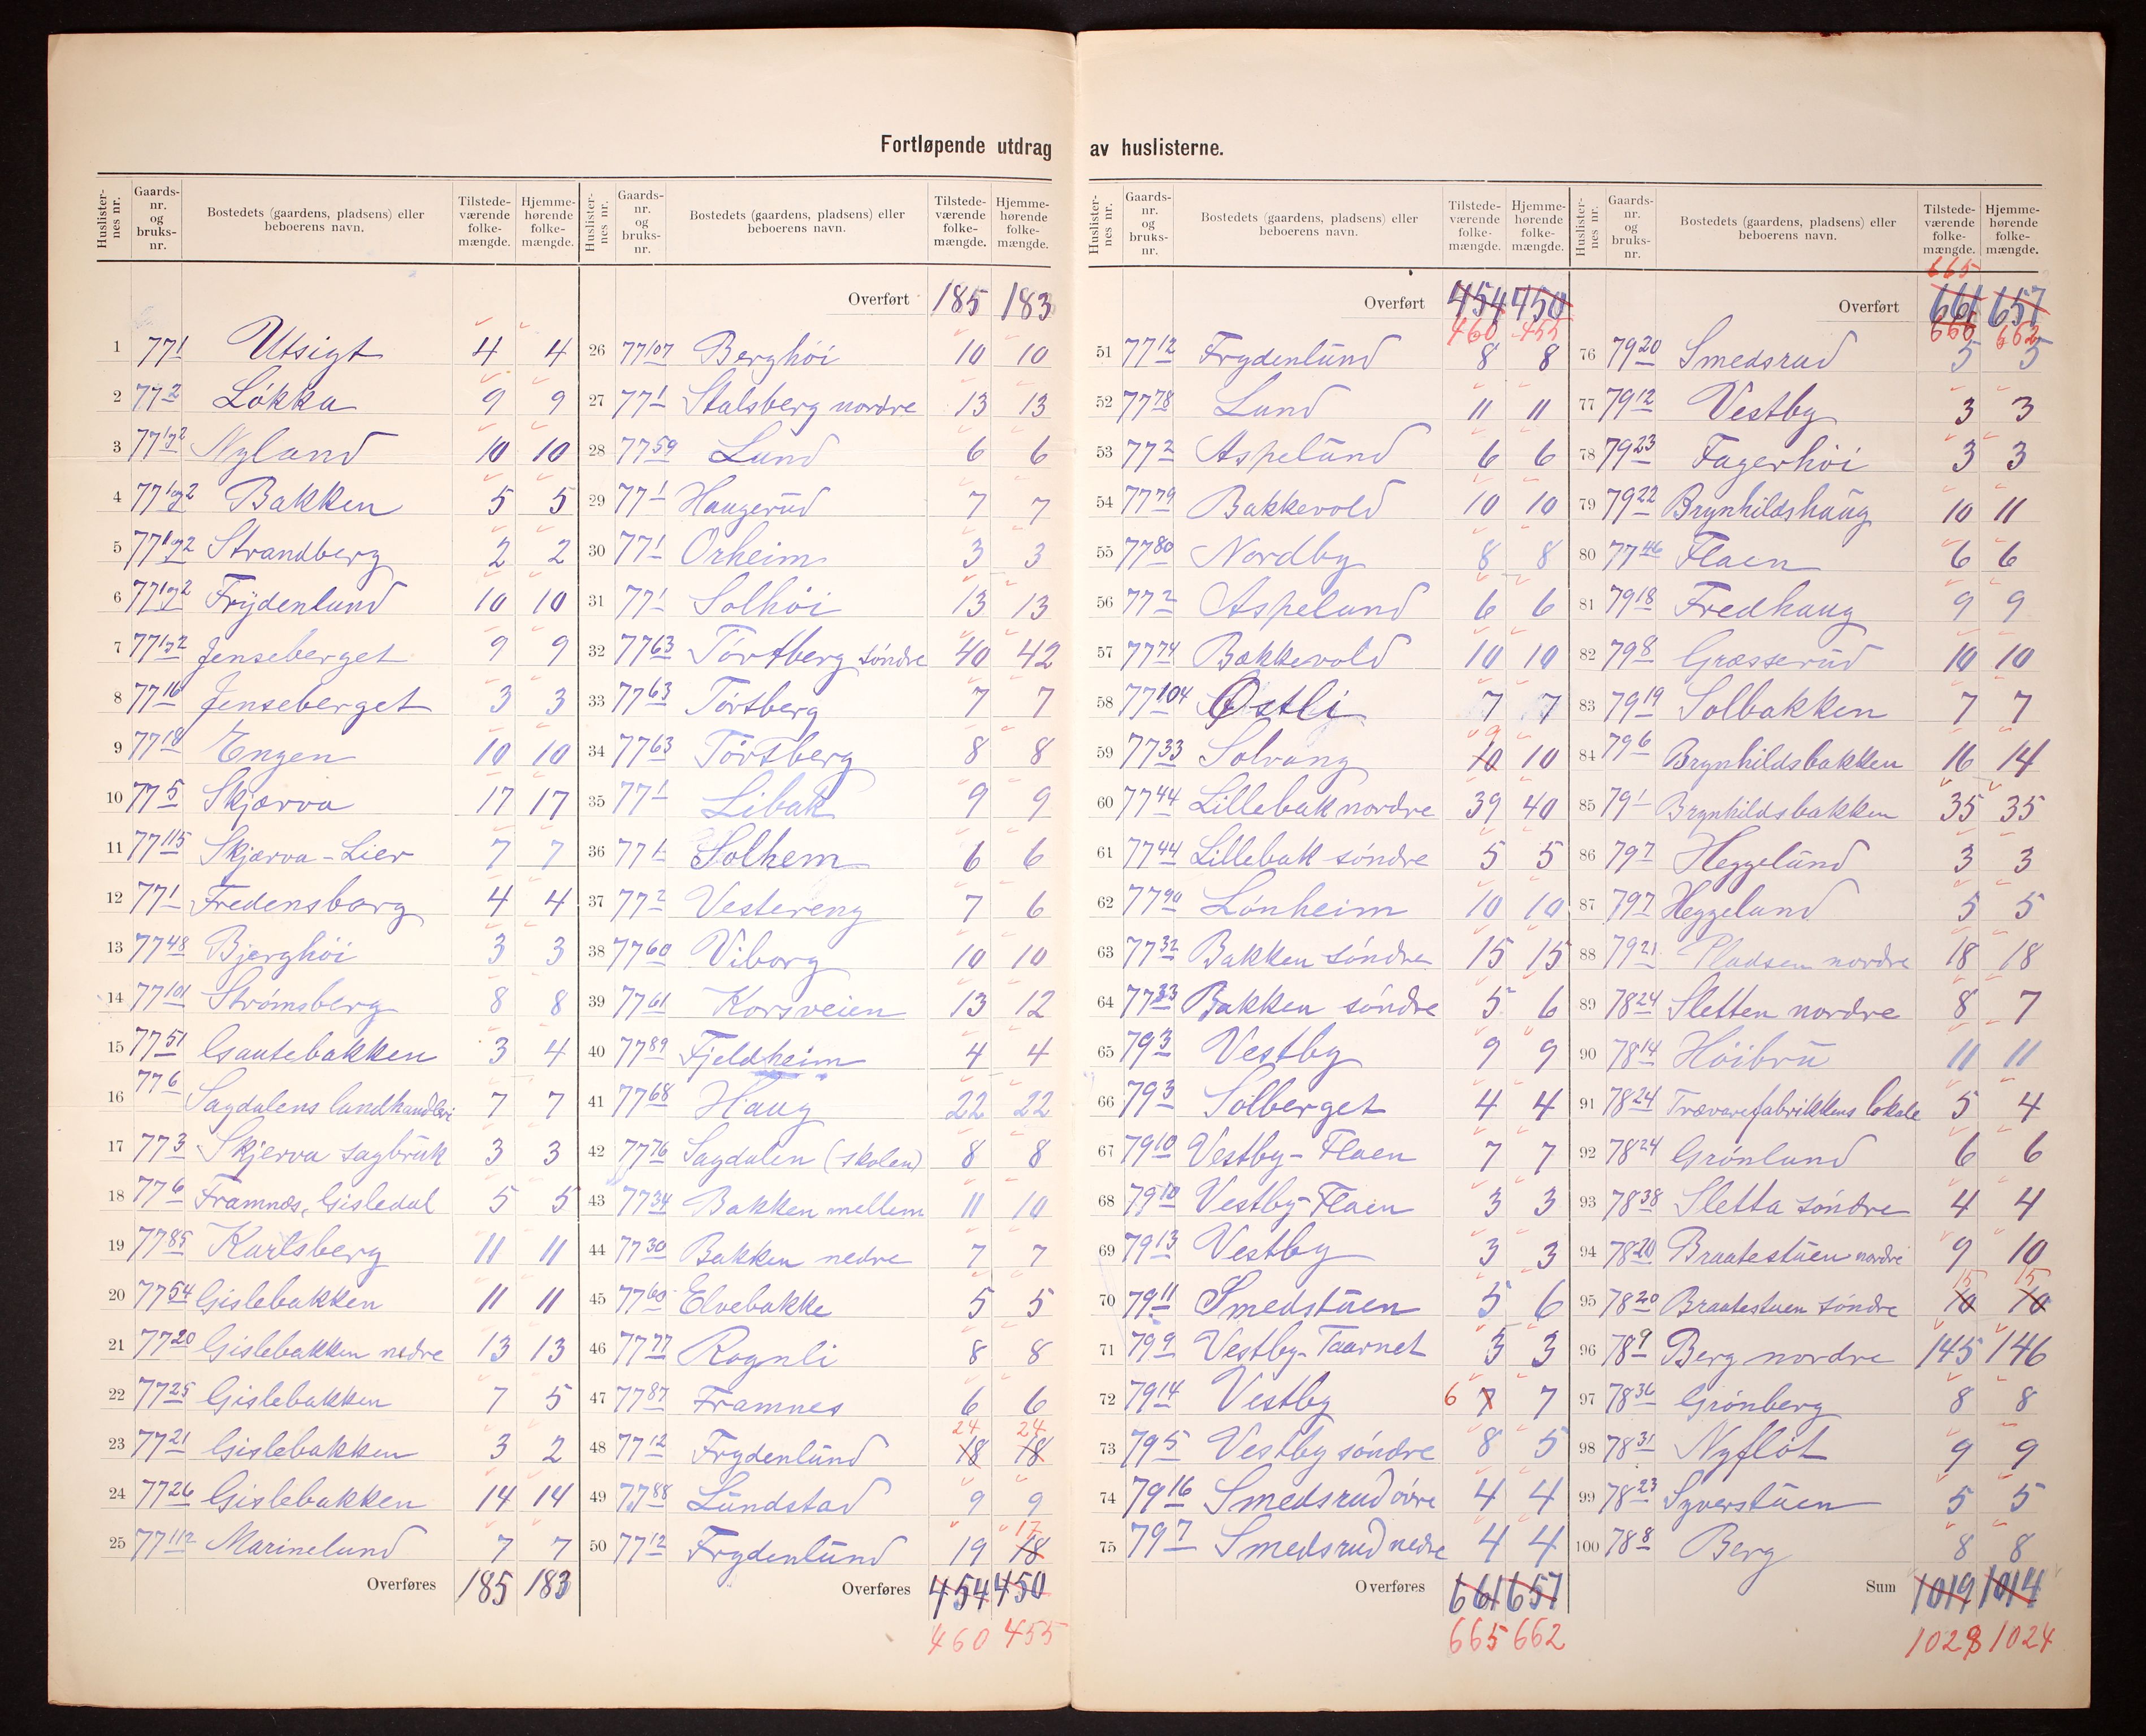 Fortløpende utdrag av huslisterne.
Huslister-nes nr. Gaards-nr. og bruks-nr. Bostedets (gaardens, pladsens) eller beboerens navn. Tilstede-værende folke-mængde. Hjemme-hørende folke-mængde.
1 77 1 Utsigt 4 4
2 77 2 Løkka 9 9
3 77 1,2 Nyland 10 10
4 77 1,2 Bakken 5 5
5 77 1,2 Strandberg 2 2
6 77 1,2 Frydenlund 10 10
7 77 1,2 Jenseberget 9 9
8 77 16 Jenseberget 3 3
9 77 18 Engen 10 10
10 77 5 Skjærva 17 17
11 77 115 Skjærva-Lier 7 7
12 77 1 Fredensborg 4 4
13 77 48 Bjerghöi 3 3
14 77 101 Strømsberg 8 8
15 77 51 Gautebakken 3 4
16 77 6 Sagdalens landhandleri 7 7
17 77 3 Skjerva sagbruk 3 3
18 77 6 Framnæs, Gisledal 5 5
19 77 85 Karlsberg 11 11
20 77 54 Gislebakken 11 11
21 77 20 Gislebakken nedre 13 13
22 77 25 Gislebakken 7 5
23 77 21 Gislebakken 3 2
24 77 26 Gislebakken 14 14
25 77 112 Marinelund 7 7
Overføres 185 183
Huslister-nes nr. Gaards-nr. og bruks-nr. Bostedets (gaardens, pladsens) eller beboerens navn. Tilstede-værende folke-mængde. Hjemme-hørende folke-mængde.
Overført 185 183
26 77 107 Berghöi 10 10
27 77 1 Stalsberg nordre 13 13
28 77 59 Lund 6 6
29 77 1 Haugerud 7 7
30 77 1 Orheim 3 3
31 77 1 Solhöi 13 13
32 77 63 Törtberg söndre 40 42
33 77 63 Törtberg 7 7
34 77 63 Törtberg 8 8
35 77 1 Libak 9 9
36 77 1 Solhem 6 6
37 77 2 Vestereng 7 6
38 77 60 Viborg 10 10
39 77 61 Korsveien 13 12
40 77 89 Fjeldheim 4 4
41 77 68 Haug 22 22
42 77 76 Sagdalen (skolen) 8 8
43 77 34 Bakken mellem 11 10
44 77 30 Bakken nedre 7 7
45 77 60 Elvebakke 5 5
46 77 77 Rognli 8 8
47 77 87 Framnes 6 6
48 77 12 Frydenlund 18 18 24 24
49 77 88 Lundstad 9 9
50 77 12 Frydenlund 19 18 17
Overføres 454 450
460 455
Huslister-nes nr. Gaards-nr. og bruks-nr. Bostedets (gaardens, pladsens) eller beboerens navn. Tilstede-værende folke-mængde. Hjemme-hørende folke-mængde.
Overført 454 450
460 455
51 77 12 Frydenlund 8 8
52 77 78 Lund 11 11
53 77 2 Aspelund 6 6
54 77 79 Bakkevold 10 10
55 77 80 Nordby 8 8
56 77 2 Aspelund 6 6
57 77 74 Bakkevold 10 10
58 77 104 Østli 7 7
59 77 33 Solvang 10 9 10
60 77 44 Lillebak nordre 39 40
61 77 44 Lillebak söndre 5 5
62 77 90 Lönheim 10 10
63 77 32 Bakken söndre 15 15
64 77 33 Bakken söndre 5 6
65 79 3 Vestby 9 9
66 79 3 Solberget 4 4
67 79 10 Vestby-Flaen 7 7
68 79 10 Vestby-Flaen 3 3
69 79 13 Vestby 3 3
70 79 11 Smedstuen 5 6
71 79 9 Vestby-Taarnet 3 3
72 79 14 Vestby 6 7 7
73 79 5 Vestby söndre 8 5
74 79 16 Smedsrud övre 4 4
75 79 7 Smedsrud nedre 4 4
Overføres 661 657
665 662
Huslister-nes nr. Gaards-nr. og bruks-nr. Bostedets (gaardens, pladsens) eller beboerens navn. Tilstede-værende folke-mængde. Hjemme-hørende folke-mængde.
665
Overført 661 657
660 662
76 79 20 Smedsrud 5 5
77 79 12 Vestby 3 3
78 79 23 Fagerhöi 3 3
79 79 22 Brynhildshaug 10 11
80 77 46 Flaen 6 6
81 79 18 Fredhaug 9 9
82 79 8 Græsserud 10 10
83 79 19 Solbakken 7 7
84 79 6 Brynhildsbakken 16 14
85 79 1 Brynhildsbakken 35 35
86 79 7 Heggelund 3 3
87 79 7 Heggelund 5 5
88 79 21 Pladsen nordre 18 18
89 78 24 Sletten nordre 8 7
90 78 14 Höibru 11 11
91 78 24 Trævarefabrikkens lokale 5 4
92 78 24 Grönlund 6 6
93 78 38 Sletta söndre 4 4
94 78 20 Braatestuen nordre 9 10
95 78 20 Braatestuen söndre 10 10 15 15
96 78 9 Berg nordre 145 146
97 78 36 Grönberg 8 8
98 78 31 Nyflot 9 9
99 78 23 Syverstuen 5 5
100 78 8 Berg 8 8
Sum 1019 1014
1028 1024